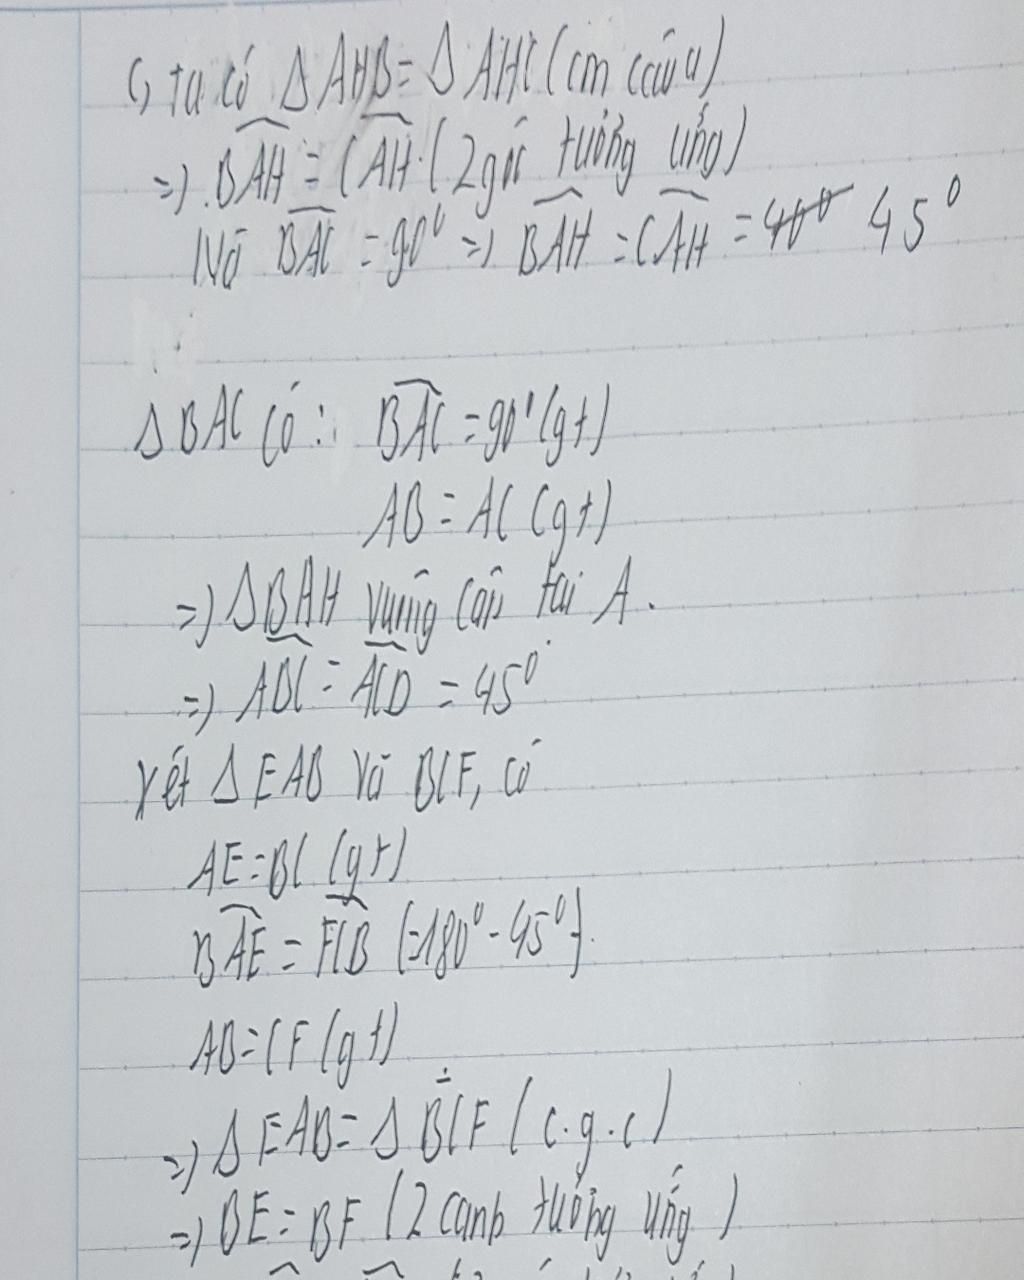 c, ta có Δ AHB = Δ AHC (cm câu a)
=> BAH = CAH (2 góc tương ứng)
Mà BAC = 90⁰ => BAH = CAH = 45⁰
Δ BAC có: BAC = 90⁰ (gt)
AB = AC (gt)
=> Δ BAH vuông cân tại A.
=> ABC = ACB = 45⁰
Xét Δ EAB và BCF, có
AE = BC (gt)
BAE = FCB (=180⁰ - 45⁰).
AB = CF (gt)
=> Δ EAB = Δ BCF (c.g.c)
=> BE = BF (2 cạnh tương ứng)